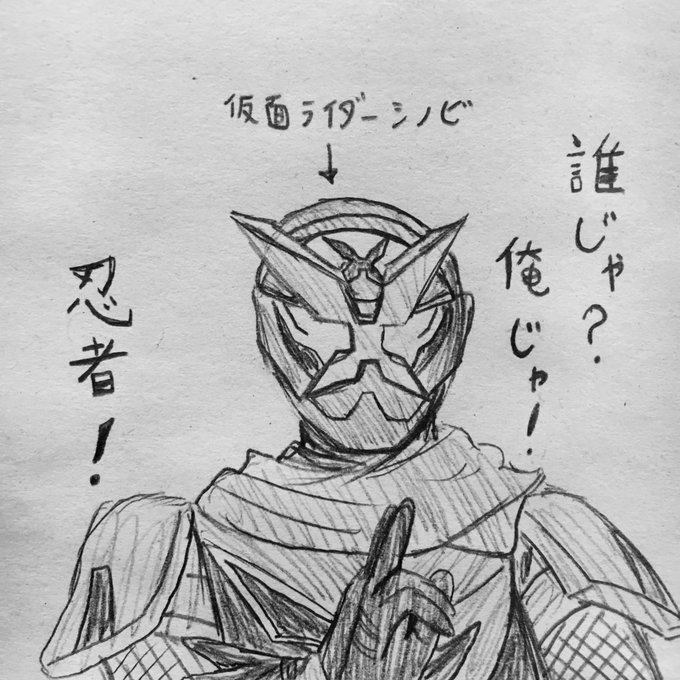 仮面ライダーシノビ
↓
誰じゃ?
俺じゃ!
忍者!